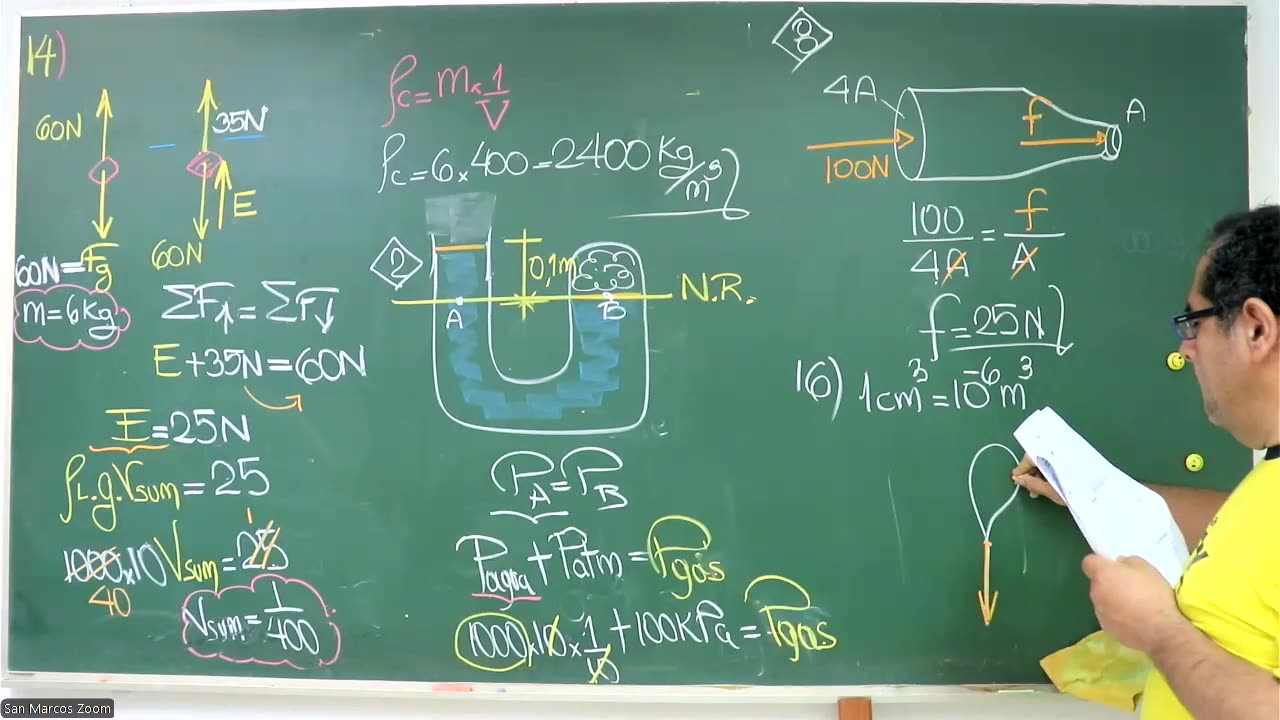 14)
60N
35N
E
60N
60N=Fg
m=6Kg
ΣF↑=ΣF↓
E+35N=60N
E=25N
ρL.g.Vsum=25
1000x10Vsum=25
1
40
Vsum=1/400
ρc=m x 1/V
ρc=6x400=2400 Kg/m³
2
0,1m
N.R.
A
B
PA=PB
Pagua+Patm=Pgas
1000x10x1/10+100KPa=Pgas
8
4A
A
f
100N
100/4A=f/A
f=25N
16) 1cm³=10⁻⁶m³
San Marcos Zoom